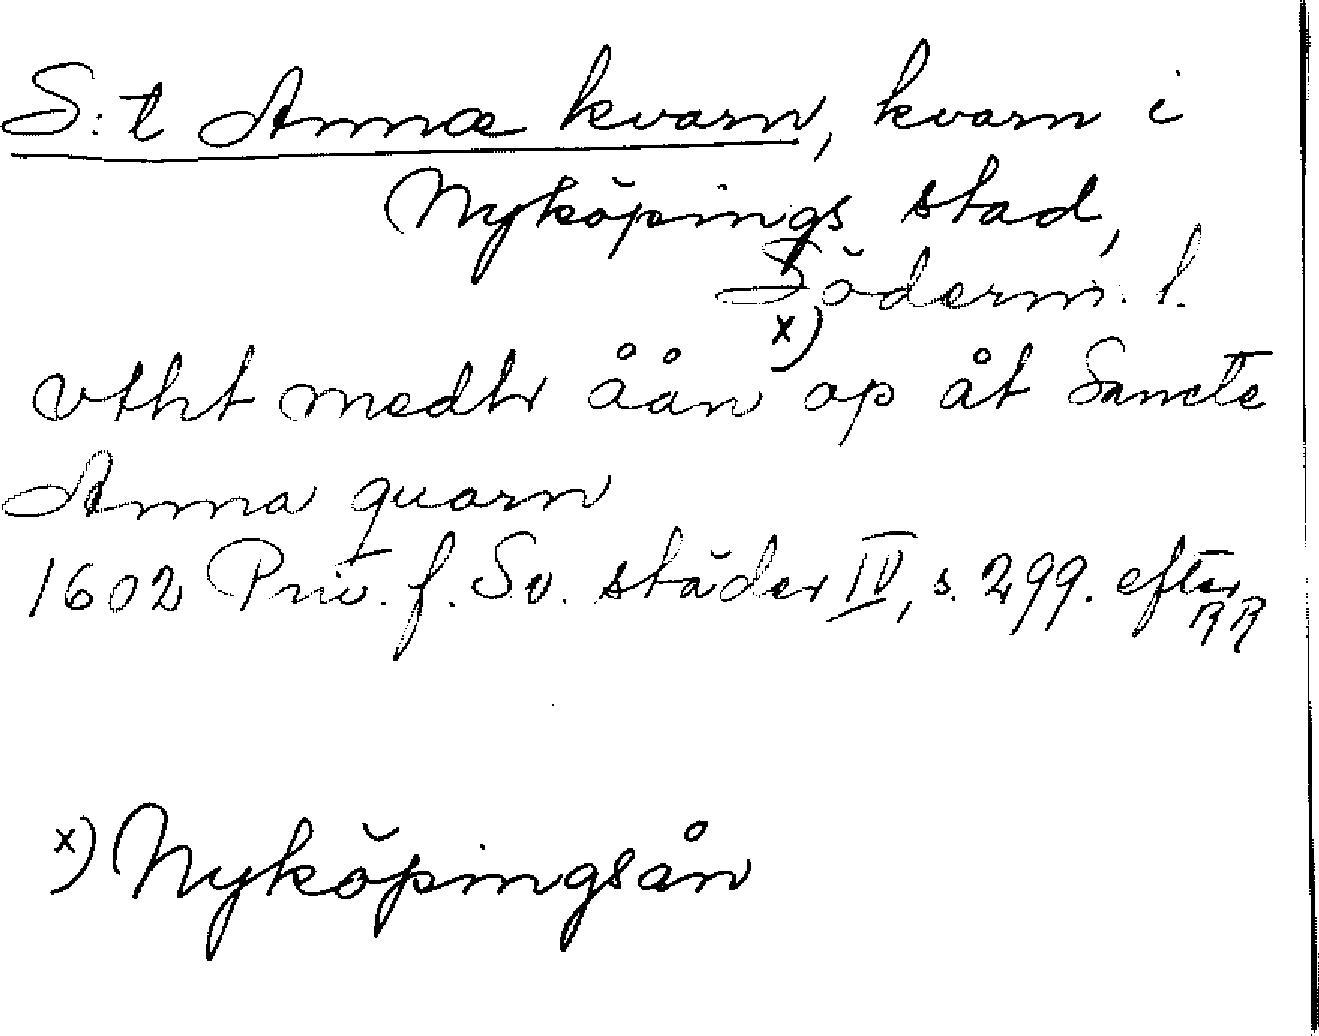 S:t Annæ kvarn, kvarn i
Nyköpings stad,
Söderm. l.
vtht medh åån x) op åt Sancte
Anna quarn
1602 Priv. f. Sv. städer IV, s. 299. efter
RR
x) Nyköpingsån